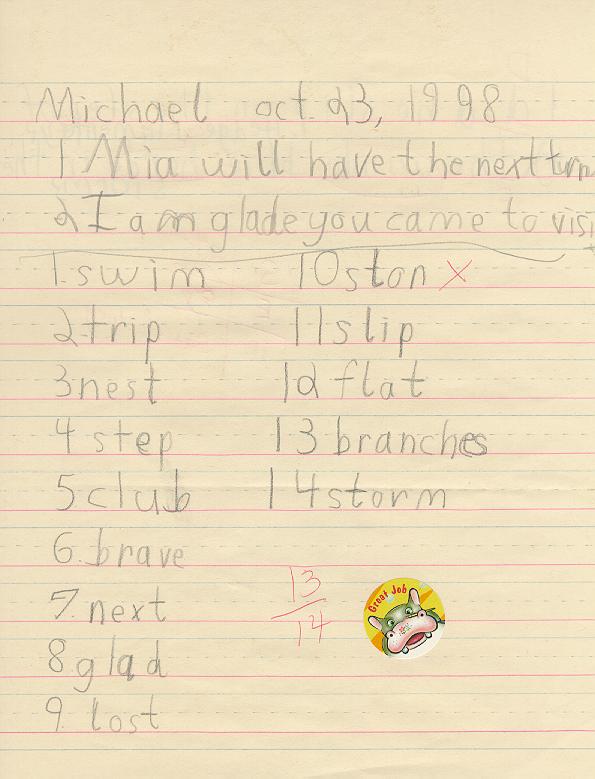 Michael oct. 23, 1998
1 Mia will have the next turn
2 I am glade you came to visit
1. swim 10 ston X
2 trip 11 slip
3 nest 12 flat
4 step 13 branches
5 club 14 storm
6. brave
7. next
8 glad
9. lost
13
14
Great Job